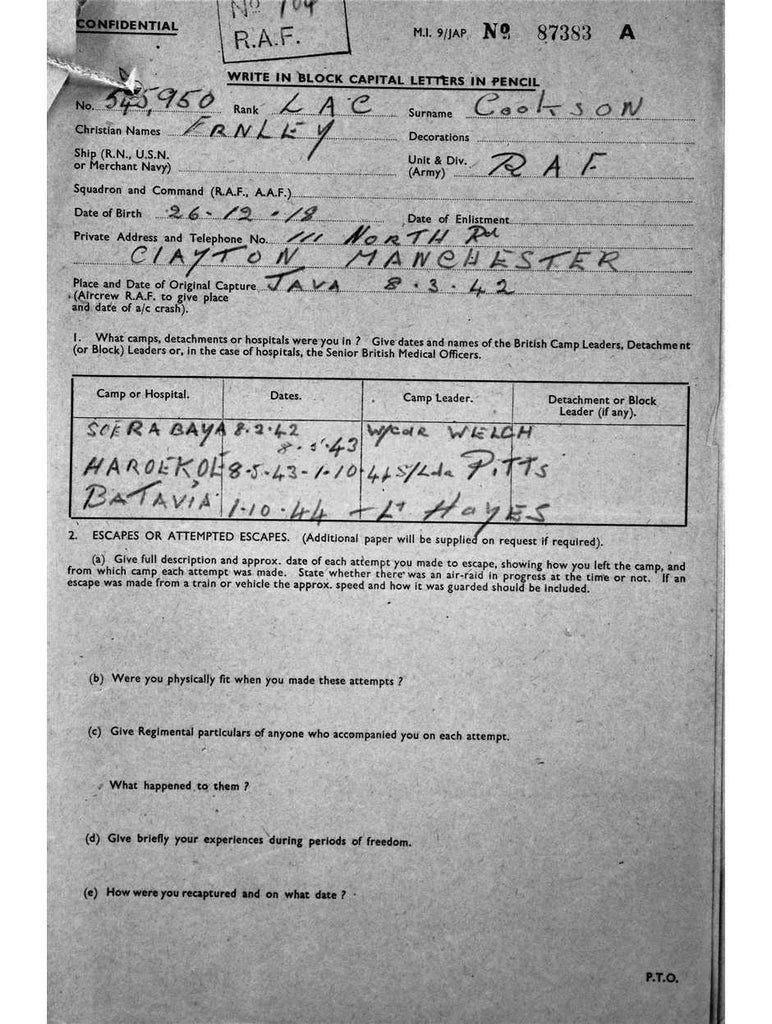 CONFIDENTIAL
Nº 104
R.A.F.
M.I. 9/JAP Nº 87383 A
WRITE IN BLOCK CAPITAL LETTERS IN PENCIL
No. 545,950 Rank LAC Surname COOKSON
Christian Names ERNLEY Decorations
Ship (R.N., U.S.N. or Merchant Navy) Unit & Div. (Army) RAF
Squadron and Command (R.A.F., A.A.F.)
Date of Birth 26.12.18 Date of Enlistment
Private Address and Telephone No. 111 NORTH Rd
CLAYTON MANCHESTER
Place and Date of Original Capture JAVA 8.3.42
(Aircrew R.A.F. to give place
and date of a/c crash).
1. What camps, detachments or hospitals were you in ? Give dates and names of the British Camp Leaders, Detachment
(or Block) Leaders or, in the case of hospitals, the Senior British Medical Officers.
Camp or Hospital. Dates. Camp Leader. Detachment or Block Leader (if any).
SOERABAYA 8.3.42 8.5.43 W/CDR WELCH
HAROEKOE 8-5-43-1-10-44 S/Ldr PITTS
BATAVIA 1.10.44 - Lt HAYES
2. ESCAPES OR ATTEMPTED ESCAPES. (Additional paper will be supplied on request if required).
(a) Give full description and approx. date of each attempt you made to escape, showing how you left the camp, and
from which camp each attempt was made. State whether there was an air-raid in progress at the time or not. If an
escape was made from a train or vehicle the approx. speed and how it was guarded should be included.
(b) Were you physically fit when you made these attempts ?
(c) Give Regimental particulars of anyone who accompanied you on each attempt.
What happened to them ?
(d) Give briefly your experiences during periods of freedom.
(e) How were you recaptured and on what date ?
P.T.O.